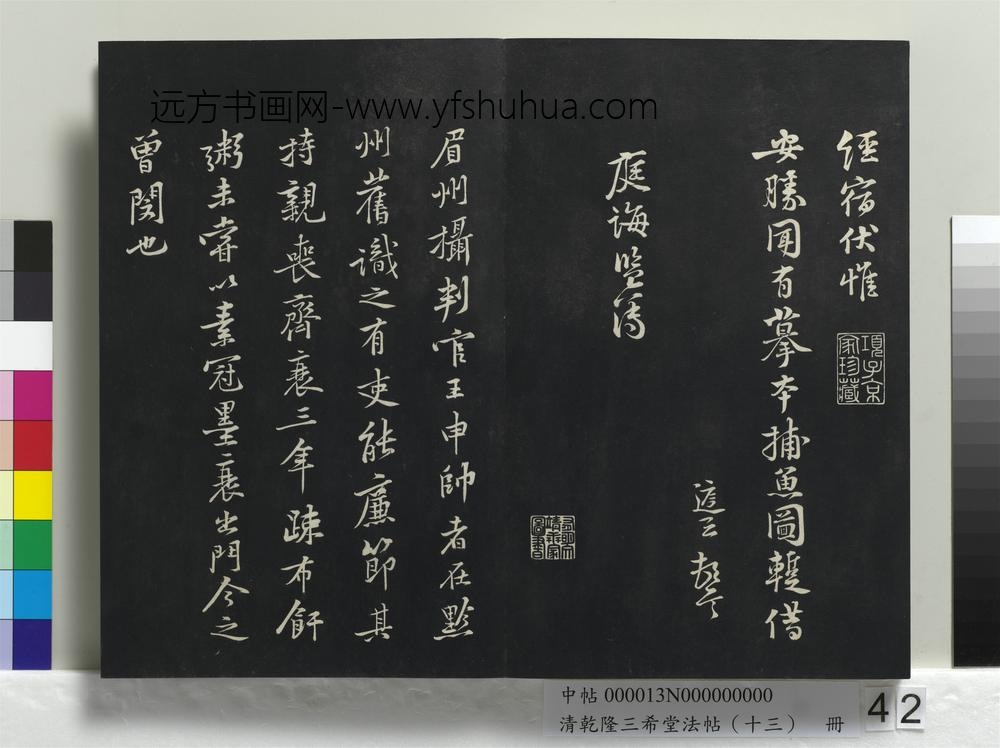 远方书画网-www.yfshuhua.com
經宿伏惟
安勝聞有摹本捕魚圖蹔借
庭堅
庭誨監簿
眉州攝判官王申帥者在黔
州舊識之有吏能廉節其
持親喪齊衰三年疎布飦
粥未嘗以素冠墨衰出門今之
曾閔也
項子京
家珍藏
中帖 000013N000000000
清乾隆三希堂法帖（十三） 冊
42